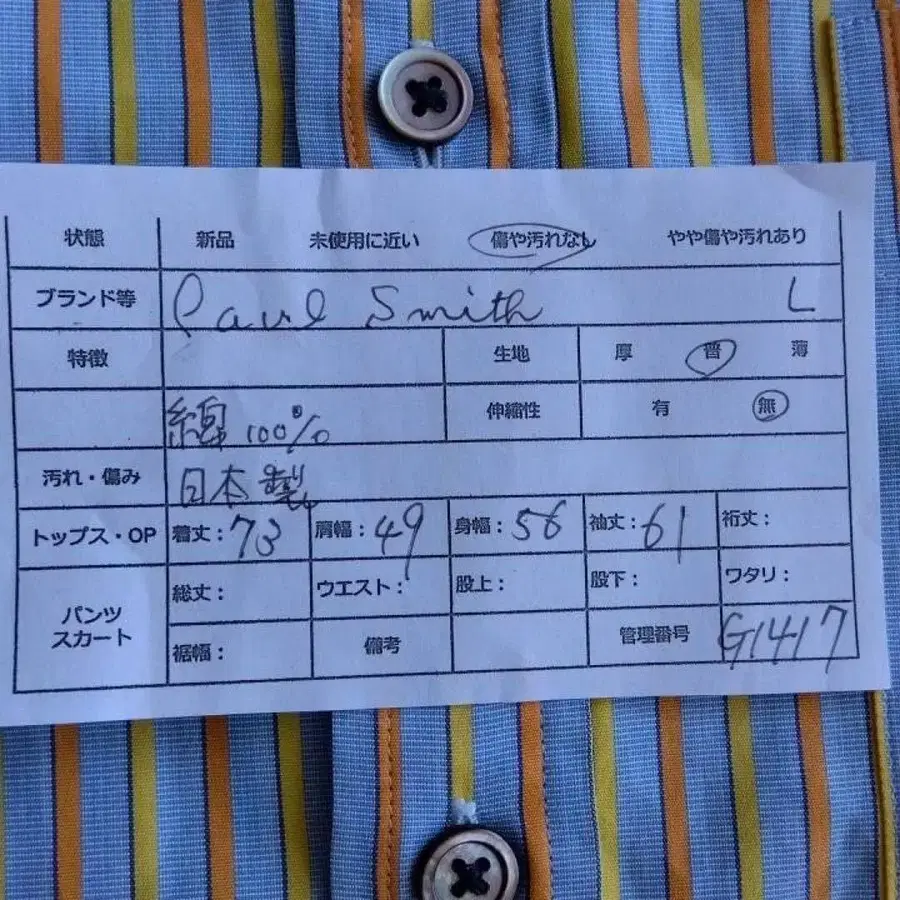 状態 新品 未使用に近い 傷や汚れなし やや傷や汚れあり
ブランド等 Paul Smith L
特徴 生地 厚 普 薄
綿100% 伸縮性 有 無
汚れ・傷み 日本製
トップス・OP 着丈:73 肩幅:49 身幅:56 袖丈:61 裄丈:
パンツ スカート 総丈: ウエスト: 股上: 股下: ワタリ:
裾幅: 備考 管理番号 G1417